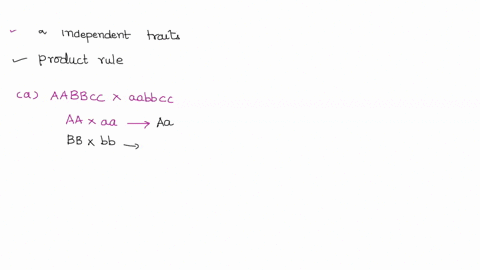 ✓ 2 independent traits
✓ product rule
(a) AABBCC × aabbcc
AA × aa → Aa
BB × bb →